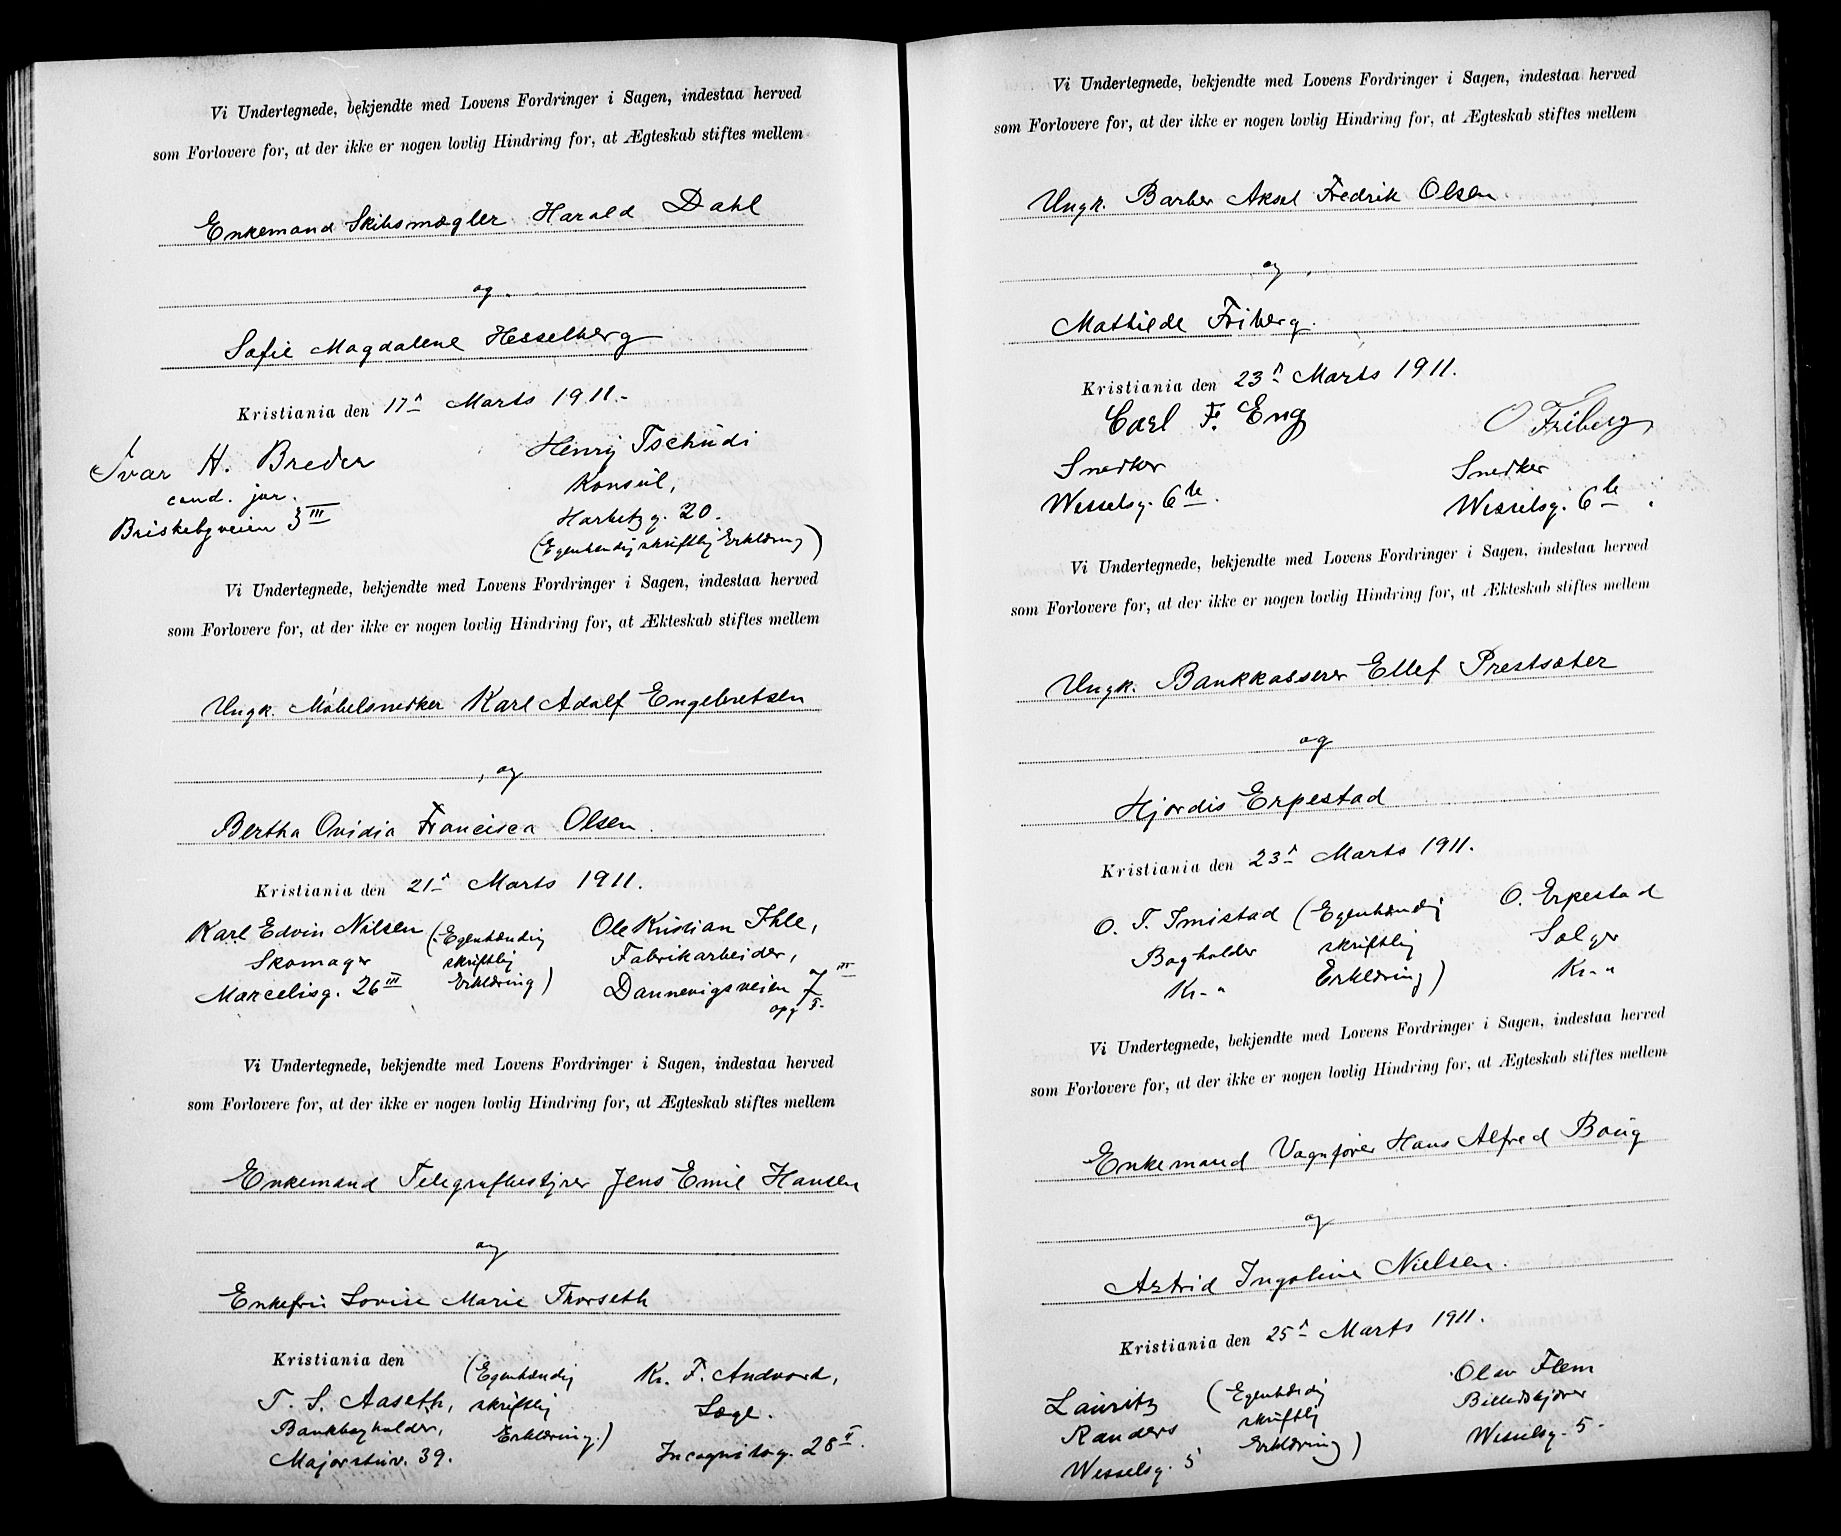 Vi Undertegnede, bekjendte med Lovens Fordringer i Sagen, indestaa herved
som Forlovere for, at der ikke er nogen lovlig Hindring for, at Ægteskab stiftes mellem
Enkemand Skibsmægler Harald Dahl
og
Sofie Magdalene Hesselberg
Kristiania den 17de Marts 1911.-
Ivar H. Breder
cand. jur.
Briskebyveien 3 III
Henry Tschudi
Konsul,
Harbitzg. 20.
(Egenhendig skriftlig Erklæring)
Vi Undertegnede, bekjendte med Lovens Fordringer i Sagen, indestaa herved
som Forlovere for, at der ikke er nogen lovlig Hindring for, at Ækteskab stiftes mellem
Ungk. Møbelsnedker Karl Adolf Engebretsen
, og
Bertha Ovidia Francisca Olsen.
Kristiania den 21de Marts 1911.
Karl Edvin Nilsen (Egenhændig
Skomager skriftlig
Marcelisg. 26 III Erklæring)
Ole Kristian Ihle,
Fabrikarbeider,
Dannevigsveien 7 III
opg I.
Vi Undertegnede, bekjendte med Lovens Fordringer i Sagen, indestaa herved
som Forlovere for, at der ikke er nogen lovlig Hindring for, at Ægteskab stiftes mellem
Enkemand Telegrafbestyrer Jens Emil Hansen
og
Enkefru Lovise Marie Thorseth
Kristiania den
T. S. Aaseth,
Bankbogholder,
Majorstuv. 39.
(Egenhændig
skriftlig
Erklæring.)
Kr. F. Andvord,
Læge.
Incognitog. 28 II.
Vi Undertegnede, bekjendte med Lovens Fordringer i Sagen, indestaa herved
som Forlovere for, at der ikke er nogen lovlig Hindring for, at Ægteskab stiftes mellem
Ungk. Barber Aksel Fredrik Olsen.
og
Mathilde Friberg.
Kristiania den 23de Marts 1911.
Carl F. Eng
Snedker
Wesselsg. 6 b.
O Friberg
Snedker
Wesselsg. 6 b.
Vi Undertegnede, bekjendte med Lovens Fordringer i Sagen, indestaa herved
som Forlovere for, at der ikke er nogen lovlig Hindring for, at Ækteskab stiftes mellem
Ungk. Bankkasserer Ellef Prestsæter
og
Hjørdis Erpestad
Kristiania den 23de Marts 1911.
O. T. Imistad (Egenhændig
Bogholder skriftlig
Kr.-a Erklæring)
O. Erpestad
Sælger
Kr.-a
Vi Undertegnede, bekjendte med Lovens Fordringer i Sagen, indestaa herved
som Forlovere for, at der ikke er nogen lovlig Hindring for, at Ægteskab stiftes mellem
Enkemand Vognfører Hans Alfred Boug
og
Astrid Ingoline Nielsen.
Kristiania den 25de Marts 1911.
Lauritz (Egenhændig
Randers skriftlig
Wesselsg. 5 Erklæring)
Olav Flem
Billedskjærer
Wesselsg. 5-